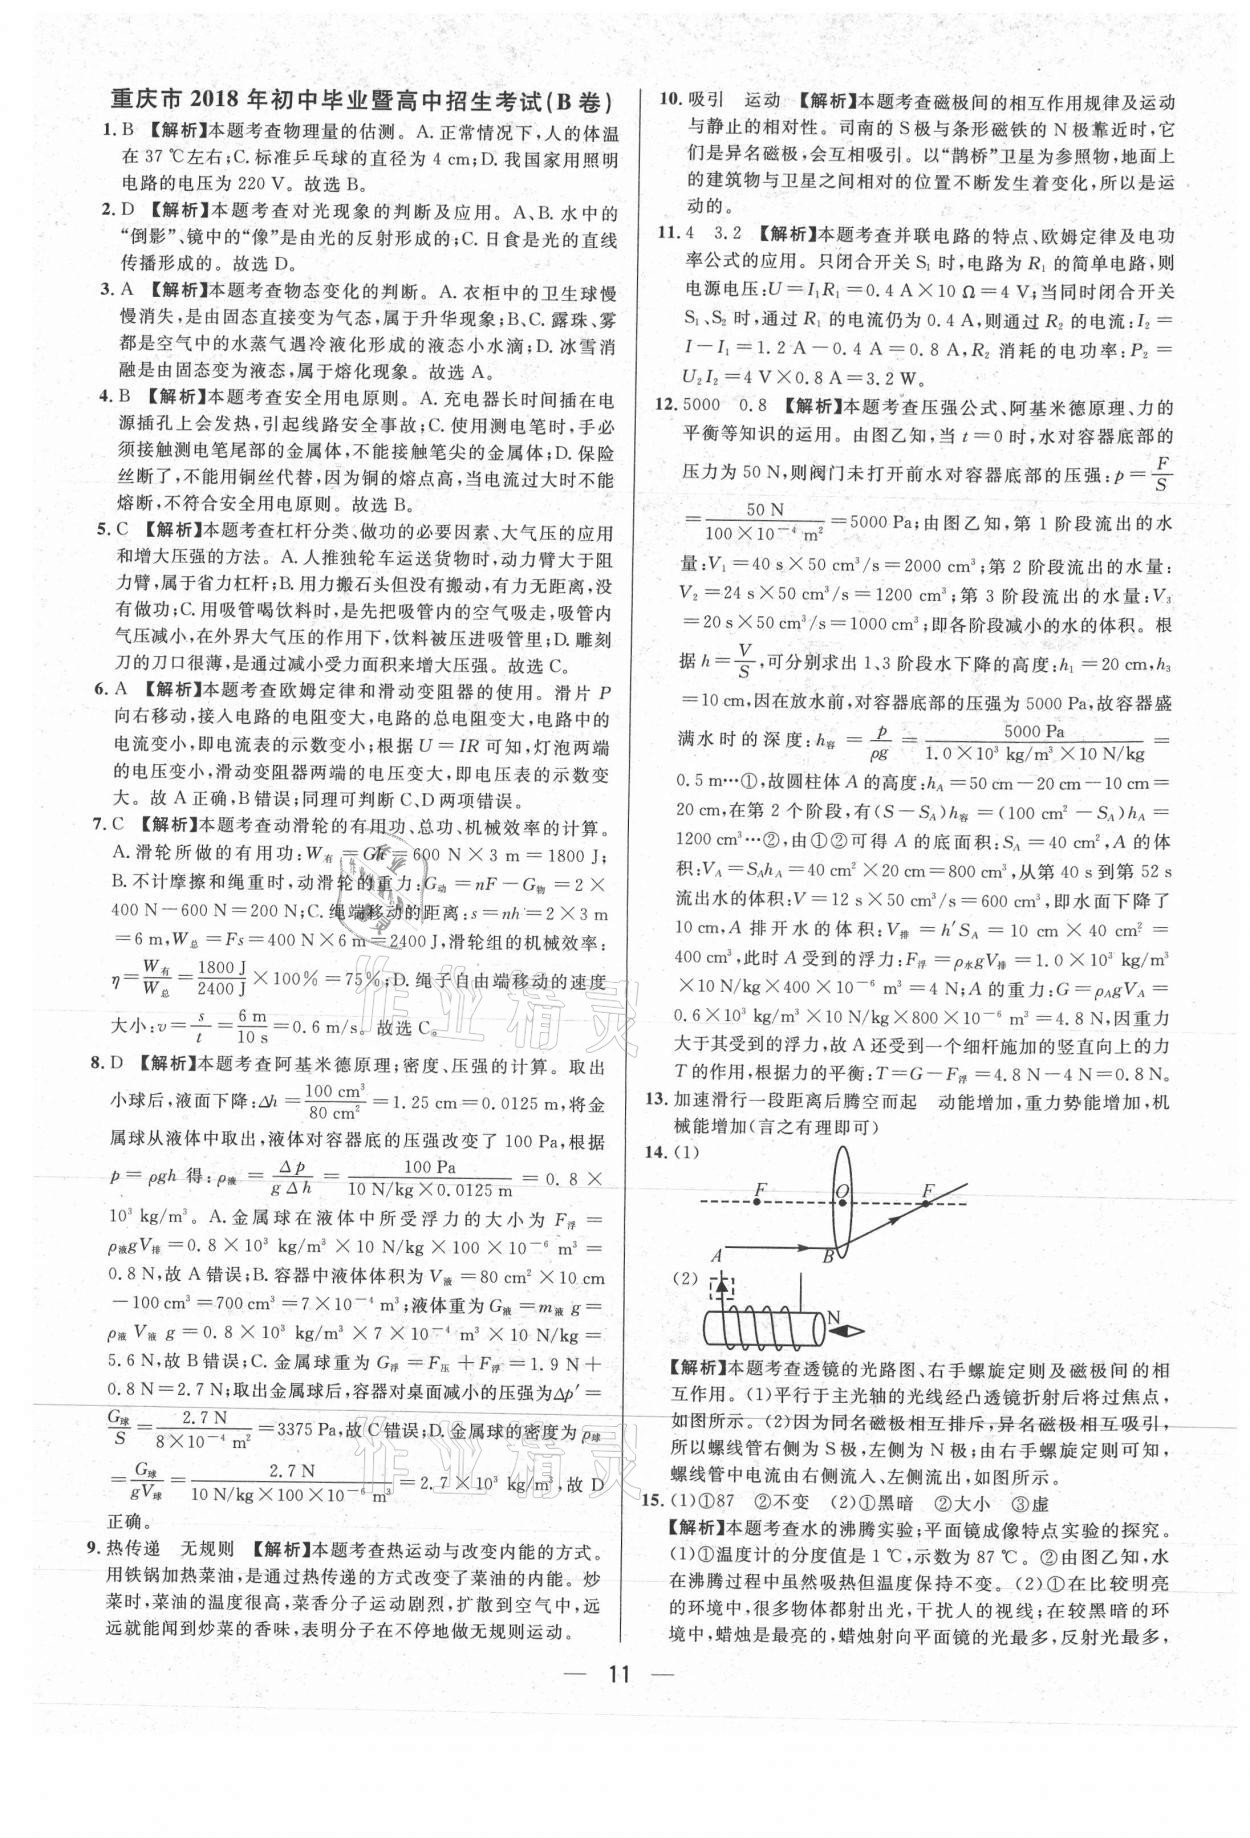 重庆市 2018 年初中毕业暨高中招生考试(B 卷)
1. B 【解析】本题考查物理量的估测。A. 正常情况下,人的体温
在 37 ℃左右;C. 标准乒乓球的直径为 4 cm;D. 我国家用照明
电路的电压为 220 V。故选 B。
2. D 【解析】本题考查对光现象的判断及应用。A、B. 水中的
“倒影”、镜中的“像”是由光的反射形成的;C. 日食是光的直线
传播形成的。故选 D。
3. A 【解析】本题考查物态变化的判断。A. 衣柜中的卫生球慢
慢消失,是由固态直接变为气态,属于升华现象;B、C. 露珠、雾
都是空气中的水蒸气遇冷液化形成的液态小水滴;D. 冰雪消
融是由固态变为液态,属于熔化现象。故选 A。
4. B 【解析】本题考查安全用电原则。A. 充电器长时间插在电
源插孔上会发热,引起线路安全事故;C. 使用测电笔时,手必
须接触测电笔尾部的金属体,不能接触笔尖的金属体;D. 保险
丝断了,不能用铜丝代替,因为铜的熔点高,当电流过大时不能
熔断,不符合安全用电原则。故选 B。
5. C 【解析】本题考查杠杆分类、做功的必要因素、大气压的应用
和增大压强的方法。A. 人推独轮车运送货物时,动力臂大于阻
力臂,属于省力杠杆;B. 用力搬石头但没有搬动,有力无距离,没
有做功;C. 用吸管喝饮料时,是先把吸管内的空气吸走,吸管内
气压减小,在外界大气压的作用下,饮料被压进吸管里;D. 雕刻
刀的刀口很薄,是通过减小受力面积来增大压强。故选 C。
6. A 【解析】本题考查欧姆定律和滑动变阻器的使用。滑片 P
向右移动,接入电路的电阻变大,电路的总电阻变大,电路中的
电流变小,即电流表的示数变小;根据 U＝IR 可知,灯泡两端
的电压变小,滑动变阻器两端的电压变大,即电压表的示数变
大。故 A 正确,B 错误;同理可判断 C、D 两项错误。
7. C 【解析】本题考查动滑轮的有用功、总功、机械效率的计算。
A. 滑轮所做的有用功:W有＝Gh＝600 N×3 m＝1800 J;
B. 不计摩擦和绳重时,动滑轮的重力:G动＝nF－G物＝2×
400 N－600 N＝200 N;C. 绳端移动的距离:s＝nh＝2×3 m
＝6 m,W总＝Fs＝400 N×6 m＝2400 J,滑轮组的机械效率:
η＝W有/W总＝1800 J/2400 J×100%＝75%;D. 绳子自由端移动的速度
大小:v＝s/t＝6 m/10 s＝0.6 m/s。故选 C。
8. D 【解析】本题考查阿基米德原理;密度、压强的计算。取出
小球后,液面下降:Δh＝100 cm³/80 cm²＝1.25 cm＝0.0125 m,将金
属球从液体中取出,液体对容器底的压强改变了 100 Pa,根据
p＝ρgh 得:ρ液＝Δp/gΔh＝100 Pa/10 N/kg×0.0125 m＝0.8×
10³ kg/m³。A. 金属球在液体中所受浮力的大小为 F浮＝
ρ液gV排＝0.8×10³ kg/m³×10 N/kg×100×10⁻⁶ m³＝
0.8 N,故 A 错误;B. 容器中液体体积为 V液＝80 cm²×10 cm
－100 cm³＝700 cm³＝7×10⁻⁴ m³;液体重为 G液＝m液 g＝
ρ液 V液 g＝0.8×10³ kg/m³×7×10⁻⁴ m³×10 N/kg＝
5.6 N,故 B 错误;C. 金属球重为 G浮＝F压＋F浮＝1.9 N＋
0.8 N＝2.7 N;取出金属球后,容器对桌面减小的压强为Δp′＝
G球/S＝2.7 N/8×10⁻⁴ m²＝3375 Pa,故 C 错误;D. 金属球的密度为 ρ球
＝G球/gV球＝2.7 N/10 N/kg×100×10⁻⁶ m³＝2.7×10³ kg/m³,故 D
正确。
9. 热传递 无规则 【解析】本题考查热运动与改变内能的方式。
用铁锅加热菜油,是通过热传递的方式改变了菜油的内能。炒
菜时,菜油的温度很高,菜香分子运动剧烈,扩散到空气中,远
远就能闻到炒菜的香味,表明分子在不停地做无规则运动。
10. 吸引 运动 【解析】本题考查磁极间的相互作用规律及运动
与静止的相对性。司南的 S 极与条形磁铁的 N 极靠近时,它
们是异名磁极,会互相吸引。以“鹊桥”卫星为参照物,地面上
的建筑物与卫星之间相对的位置不断发生着变化,所以是运
动的。
11. 4 3.2 【解析】本题考查并联电路的特点、欧姆定律及电功
率公式的应用。只闭合开关 S₁ 时,电路为 R₁ 的简单电路,则
电源电压:U＝I₁R₁＝0.4 A×10 Ω＝4 V;当同时闭合开关
S₁、S₂ 时,通过 R₁ 的电流仍为 0.4 A,则通过 R₂ 的电流:I₂＝
I－I₁＝1.2 A－0.4 A＝0.8 A,R₂ 消耗的电功率:P₂＝
U₂I₂＝4 V×0.8 A＝3.2 W。
12. 5000 0.8 【解析】本题考查压强公式、阿基米德原理、力的
平衡等知识的运用。由图乙知,当 t＝0 时,水对容器底部的
压力为 50 N,则阀门未打开前水对容器底部的压强:p＝F/S
＝50 N/100×10⁻⁴ m²＝5000 Pa;由图乙知,第 1 阶段流出的水
量:V₁＝40 s×50 cm³/s＝2000 cm³;第 2 阶段流出的水量:
V₂＝24 s×50 cm³/s＝1200 cm³;第 3 阶段流出的水量:V₃
＝20 s×50 cm³/s＝1000 cm³;即各阶段减小的水的体积。根
据 h＝V/S,可分别求出 1、3 阶段水下降的高度:h₁＝20 cm,h₃
＝10 cm,因在放水前,对容器底部的压强为 5000 Pa,故容器盛
满水时的深度:h容＝p/ρg＝5000 Pa/1.0×10³ kg/m³×10 N/kg＝
0.5 m…①,故圆柱体 A 的高度:hA＝50 cm－20 cm－10 cm＝
20 cm,在第 2 个阶段,有(S－SA)h容＝(100 cm²－SA)hA＝
1200 cm³…②,由①②可得 A 的底面积:SA＝40 cm²,A 的体
积:VA＝SAhA＝40 cm²×20 cm＝800 cm³,从第 40 s 到第 52 s
流出水的体积:V＝12 s×50 cm³/s＝600 cm³,即水面下降了
10 cm,A 排开水的体积:V排＝h′SA＝10 cm×40 cm²＝
400 cm³,此时 A 受到的浮力:F浮＝ρ水gV排＝1.0×10³ kg/m³
×10 N/kg×400×10⁻⁶ m³＝4 N;A 的重力:G＝ρAgVA＝
0.6×10³ kg/m³×10 N/kg×800×10⁻⁶ m³＝4.8 N,因重力
大于其受到的浮力,故 A 还受到一个细杆施加的竖直向上的力
T 的作用,根据力的平衡:T＝G－F浮＝4.8 N－4 N＝0.8 N。
13. 加速滑行一段距离后腾空而起 动能增加,重力势能增加,机
械能增加(言之有理即可)
14. (1)
F O F
A B
(2)
N
【解析】本题考查透镜的光路图、右手螺旋定则及磁极间的相
互作用。(1)平行于主光轴的光线经凸透镜折射后将过焦点,
如图所示。(2)因为同名磁极相互排斥,异名磁极相互吸引,
所以螺线管右侧为 S 极,左侧为 N 极;由右手螺旋定则可知,
螺线管中电流由右侧流入、左侧流出,如图所示。
15. (1)①87 ②不变 (2)①黑暗 ②大小 ③虚
【解析】本题考查水的沸腾实验;平面镜成像特点实验的探究。
(1)①温度计的分度值是 1 ℃,示数为 87 ℃。②由图乙知,水
在沸腾过程中虽然吸热但温度保持不变。(2)①在比较明亮
的环境中,很多物体都射出光,干扰人的视线;在较黑暗的环
境中,蜡烛是最亮的,蜡烛射向平面镜的光最多,反射光最多,
— 11 —
作业精灵
作业精灵